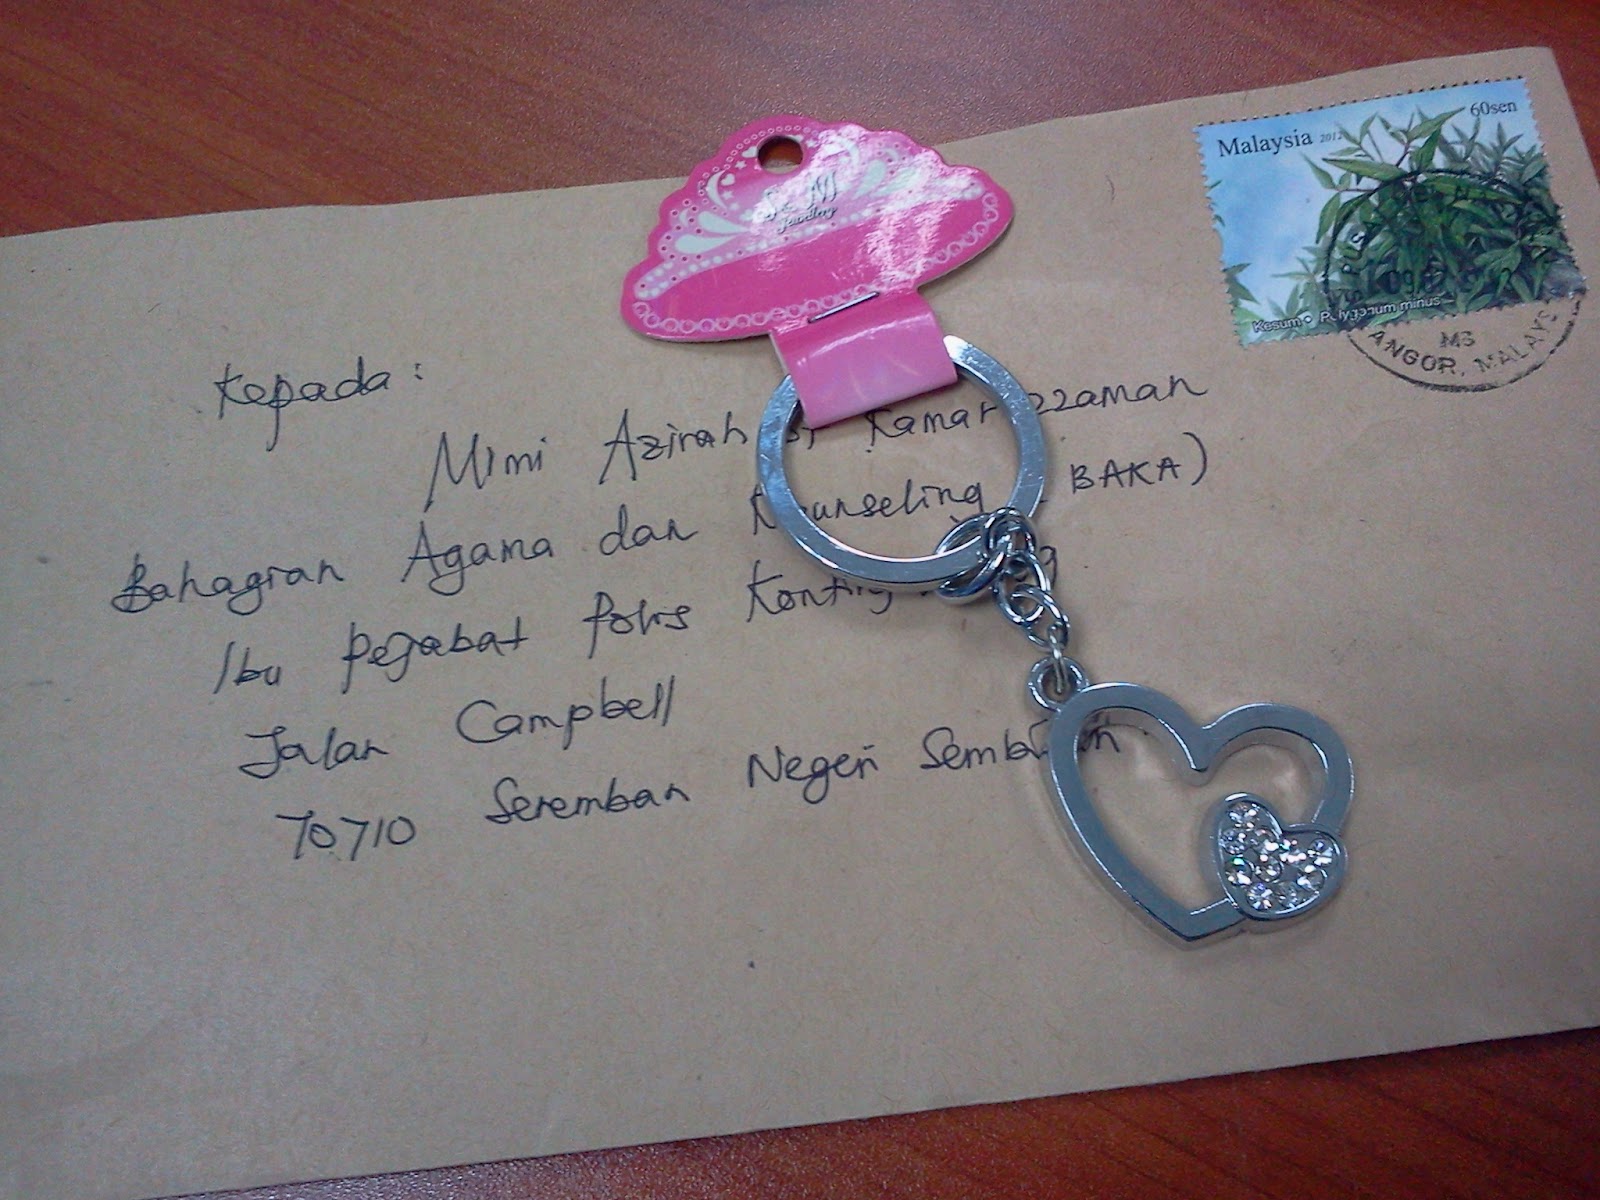 Malaysia 2012 60sen
Kesum • Polygonum minus
M3
ANGOR, MALAYS
& M
Jewellery
Kepada :
Mimi Azirah Kamar zzaman
Bahagian Agama dan Kaunseling BAKA)
Ibu Pejabat Polis
Jalan Campbell
70710 Seremban Negeri Sembilan